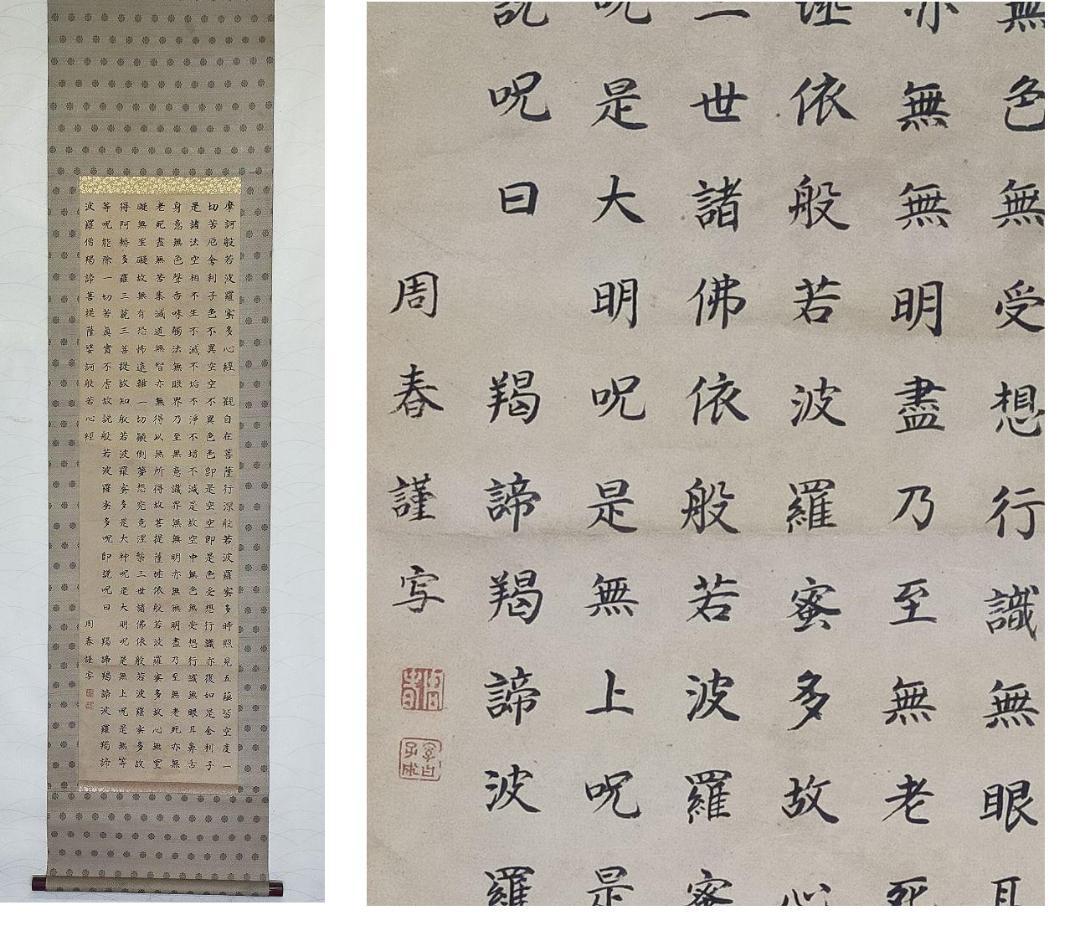 摩訶般若波羅蜜多心經 觀自在菩薩行深般若波羅蜜多時照見五蘊皆空度一
切苦厄舍利子色不異空空不異色色即是空空即是色受想行識亦復如是舍利子
是諸法空相不生不滅不垢不淨不增不減是故空中無色無受想行識無眼耳鼻舌
身意無色聲香味觸法無眼界乃至無意識界無無明亦無無明盡乃至無老死亦無
老死盡無苦集滅道無智亦無得以無所得故菩提薩埵依般若波羅蜜多故心無罣
礙無罣礙故無有恐怖遠離一切顛倒夢想究竟涅槃三世諸佛依般若波羅蜜多故
得阿耨多羅三藐三菩提故知般若波羅蜜多是大神呪是大明呪是無上呪是無等
等呪能除一切苦真實不虛故說般若波羅蜜多呪即說呪曰 羯諦羯諦波羅羯諦
波羅僧羯諦菩提薩婆訶般若心經 周春謹写
無色無受想行識無眼耳
亦無無明盡乃至無老死
埵依般若波羅蜜多故心
三世諸佛依般若波羅蜜
呪是大明呪是無上呪是
說呪曰 羯諦羯諦波羅
周春謹写